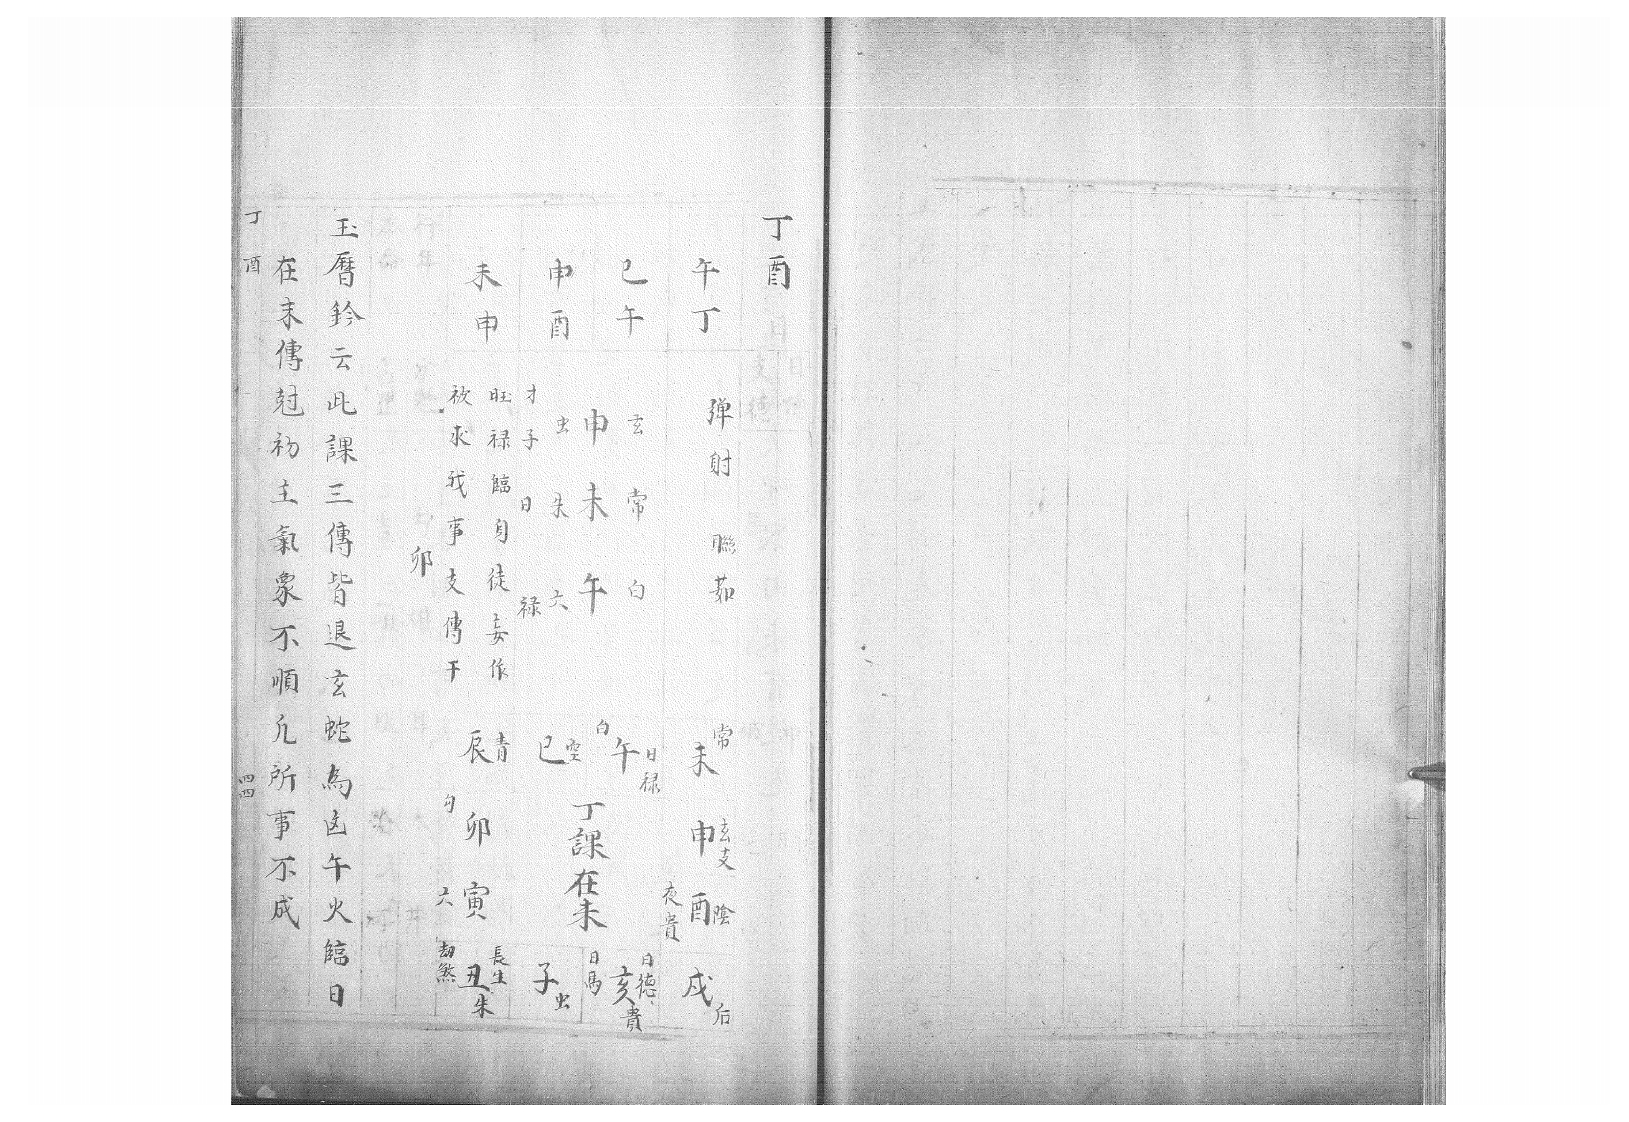 丁酉
午丁
巳午
申酉
未申
彈射
聯茹
玄 常 白
申 未 午
虫 朱 六
才子 日 祿
旺祿臨身徒妄作
被求我事支傳干
卯
常 玄支 陰 后
未 申 酉 戌
夜貴
日祿 日德
午 亥 貴
白 日馬
丁課在未
空 巳 子 虫
青 長生
辰 卯 寅 丑 朱
勾 六 劫煞
玉曆鈐云此課三傳皆退玄蛇為凶午火臨日
在未傳尅初主氣象不順凢所事不成
丁酉
四四